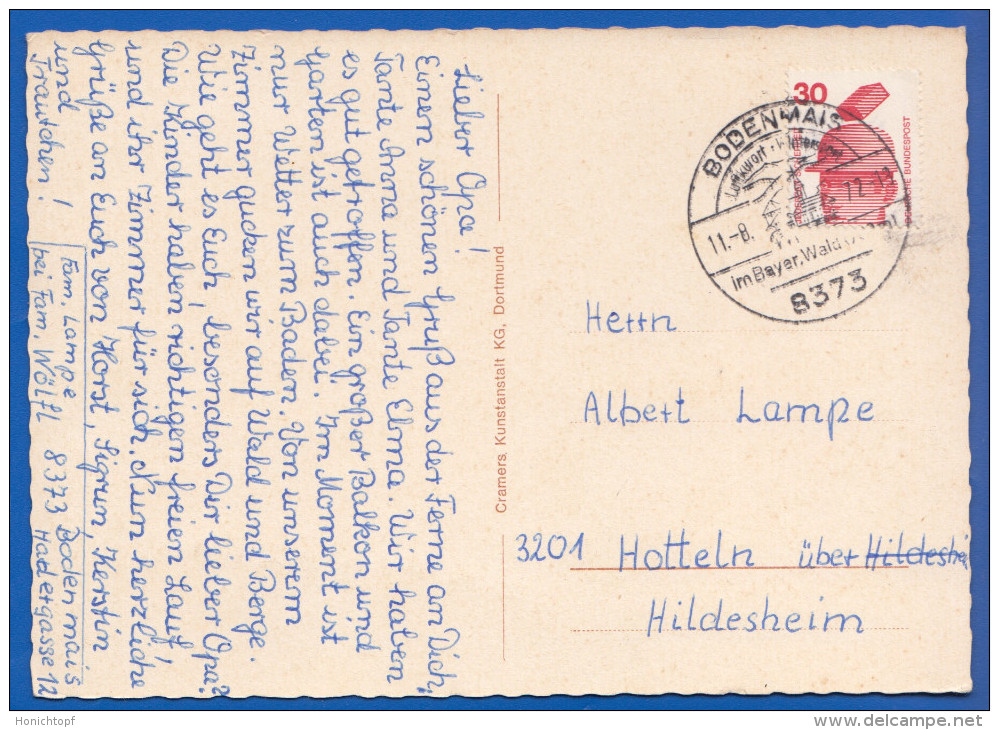 Lieber Opa!
Einen schönen Gruß aus der Ferne an Dich,
Tante Anna und Tante Elma. Wir haben
es gut getroffen. Ein großer Balkon und
Garten ist auch dabei. Im Moment ist
nur Wetter zum Baden. Von unserem
Zimmer gucken wir auf Wald und Berge.
Wie geht es Euch, besonders Dir lieber Opa?
Die Kinder haben richtigen freien Lauf
und ihr Zimmer für sich. Nun herzliche
Grüße an Euch von Horst, Sigrun, Kerstin
und
Trautchen!
Fam. Lampe
bei Fam. Wölfl 8373 Bodenmais
Hadergasse 12
Cramers Kunstanstalt KG, Dortmund
30
DEUTSCHE BUNDESPOST
BODENMAIS
11.-8. 72.-19
im Bayer. Wald
8373
Herrn
Albert Lampe
3201 Hotteln über Hildeshei
Hildesheim
Honichtopf
www.delcampe.net